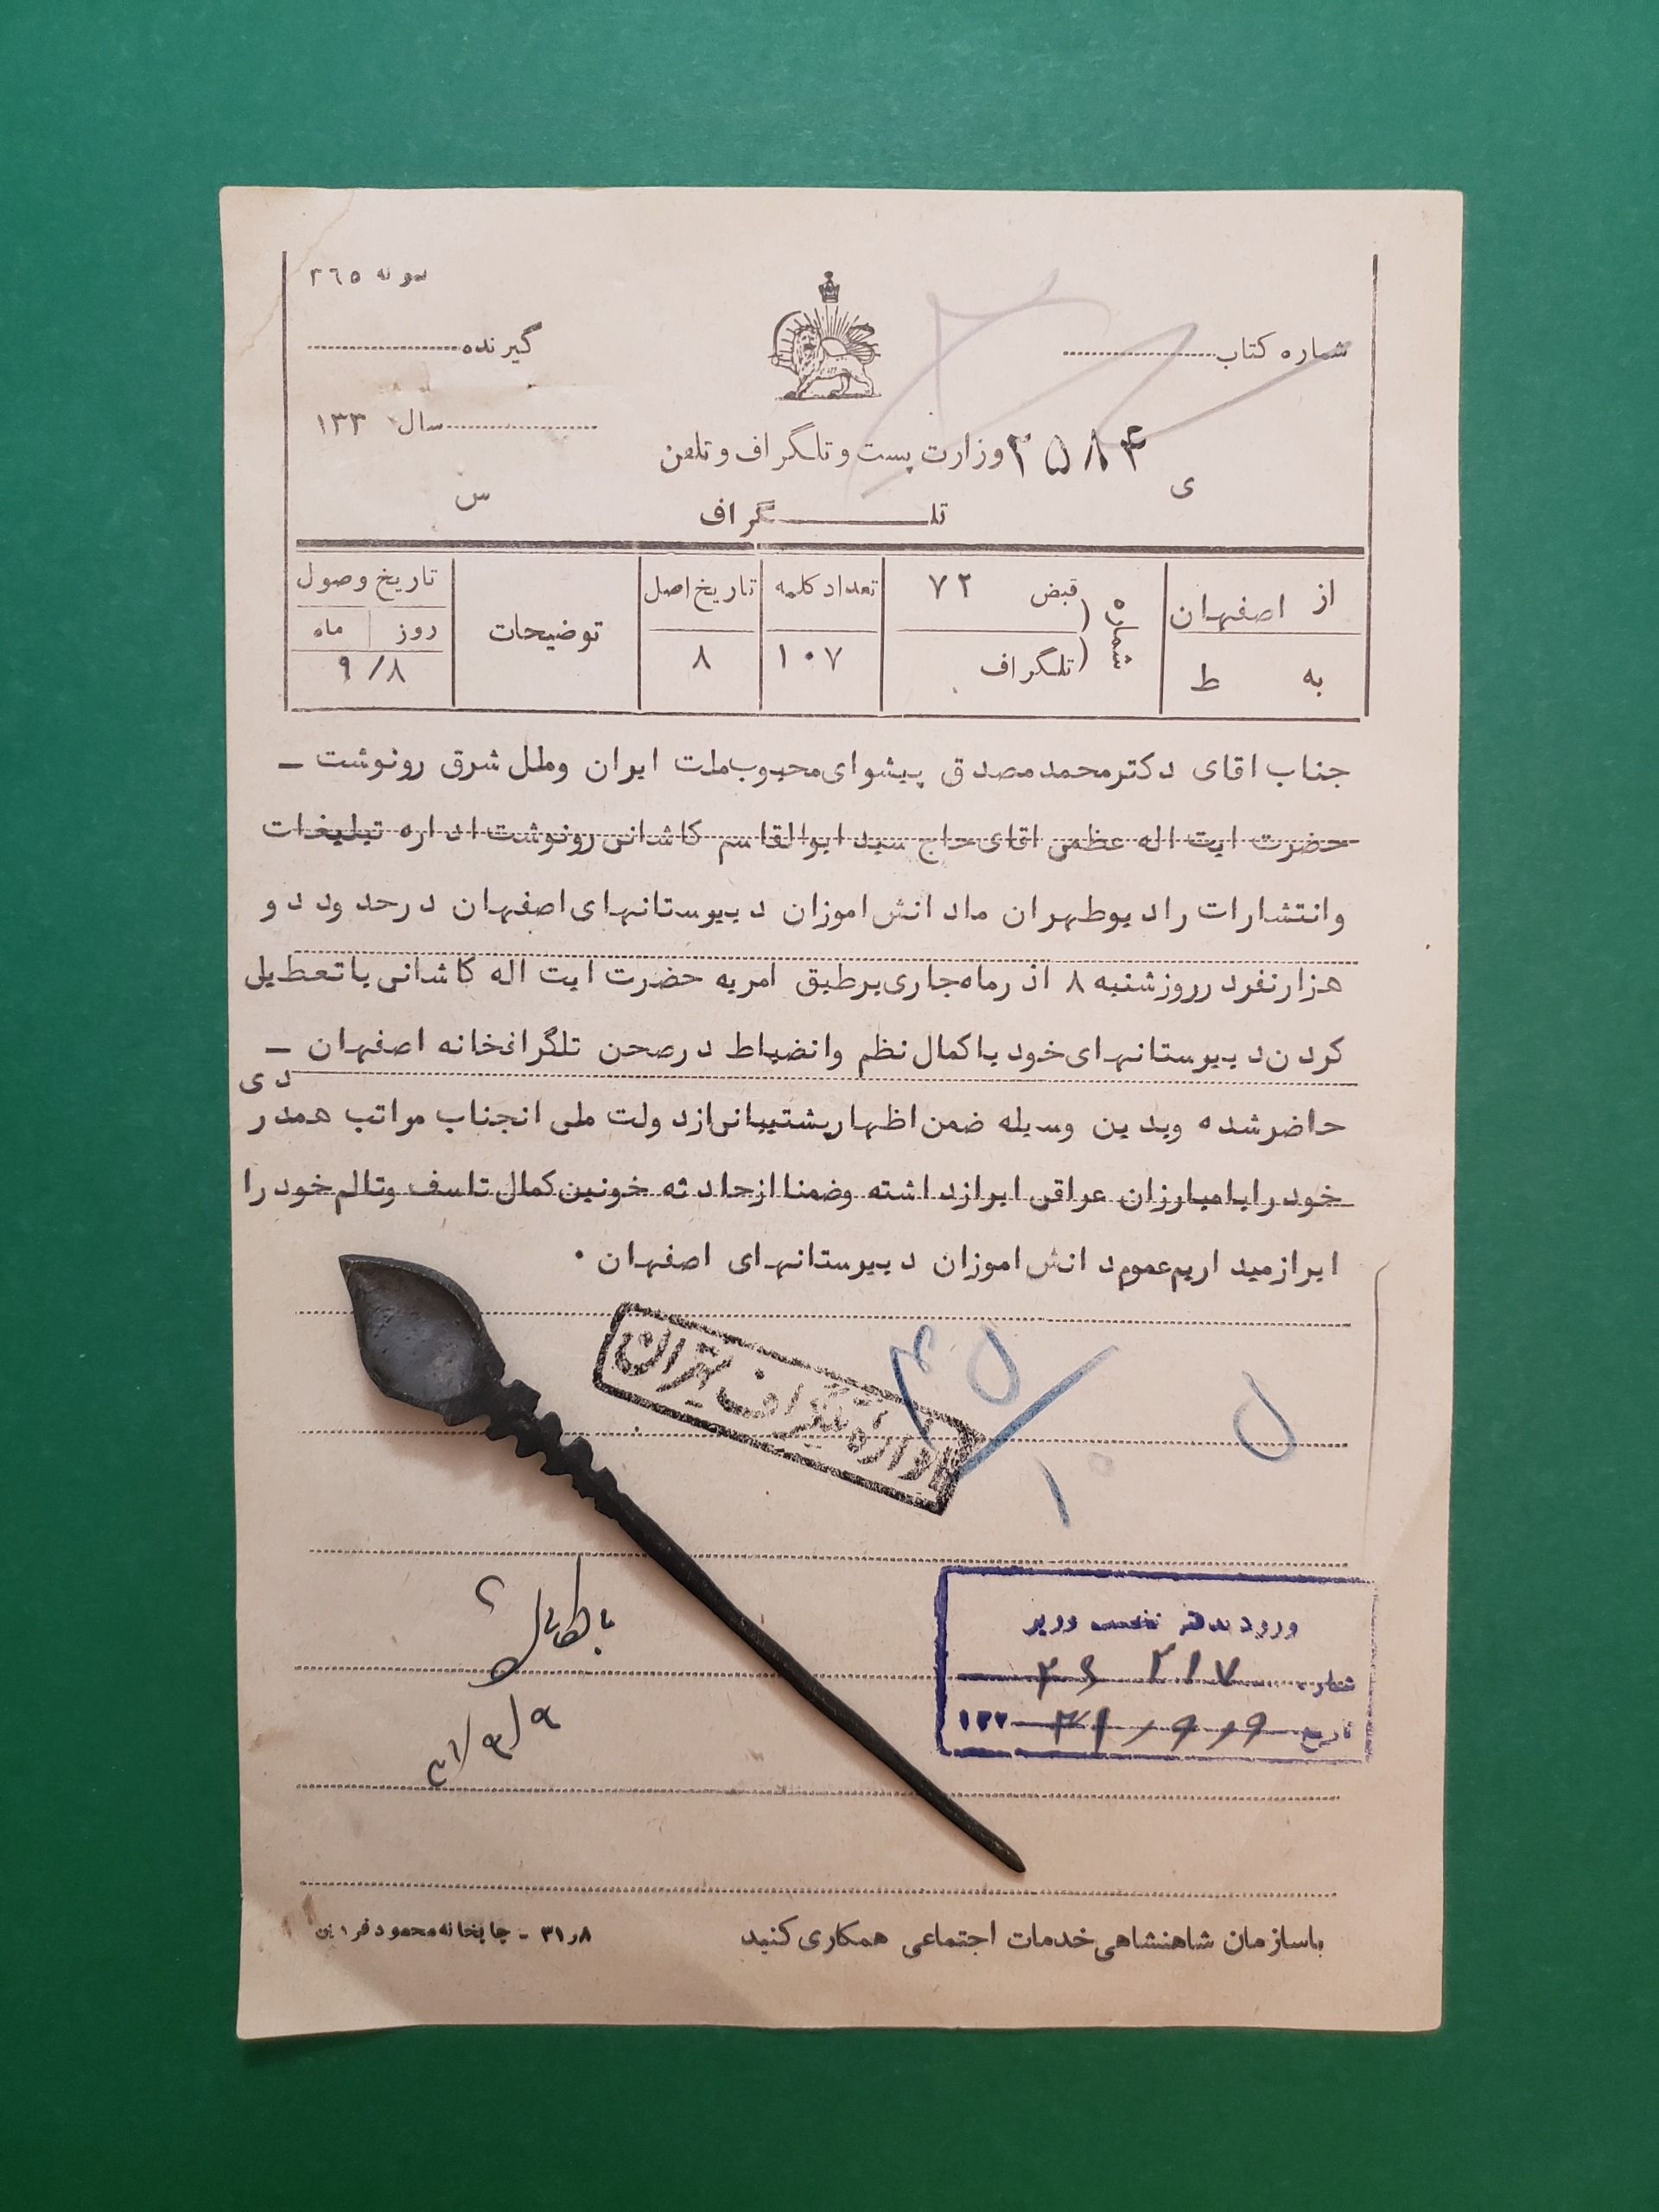 نمونه ۲٦٥
شماره کتاب
گیرنده
سال ۱۳۳
۲۵۸۴ وزارت پست و تلگراف و تلفن
ی
س
تلگراف
از اصفهان
به ط
شماره
قبض ۷۲
تلگراف
تعداد کلمه
۱۰۷
تاریخ اصل
۸
توضیحات
تاریخ وصول
روز ماه
۹/۸
جناب اقای دکتر محمد مصدق پیشوای محبوب ملت ایران و ملل شرق رونوشت ـ
حضرت ایت اله عظمی اقای حاج سید ابوالقاسم کاشانی رونوشت اداره تبلیغات
و انتشارات رادیو طهران ما دانش اموزان دبیرستانهای اصفهان در حدود دو
هزار نفر در روز شنبه ۸ اذر ماه جاری بر طبق امریه حضرت ایت اله کاشانی با تعطیل
کردن دبیرستانهای خود با کمال نظم و انضباط در صحن تلگرافخانه اصفهان ـ
حاضر شده وبدین وسیله ضمن اظهار پشتیبانی از دولت ملی انجناب مراتب همدردی
خود را با مبارزان عراقی ابراز داشته وضمنا از حادثه خونین کمال تاسف وتالم خود را
ابراز میداریم عموم دانش اموزان دبیرستانهای اصفهان ۰
اداره تلگراف تهران
ل
۳۱/۹/۹
ورود بدفتر نخست وزیر
شماره
تاریخ ۹ ر ۹ ر ۳۱ ۱۳۳
با سازمان شاهنشاهی خدمات اجتماعی همکاری کنید
۸ر۳۱ ـ چاپخانه محمود فردین